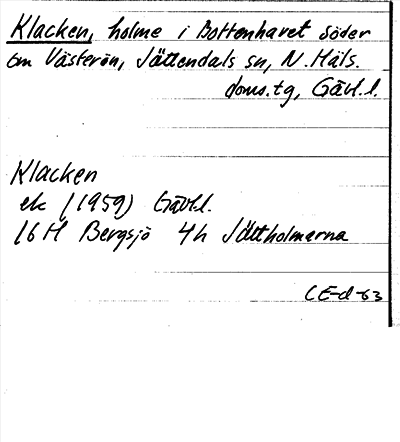 Klacken, holme i Bottenhavet söder
om Västerön, Jättendals sn, N. Häls.
doms.tg, Gävl.l.
Klacken
ek (1959) Gävl.l.
16H Bergsjö 4h Jättholmarna
CE-d-63